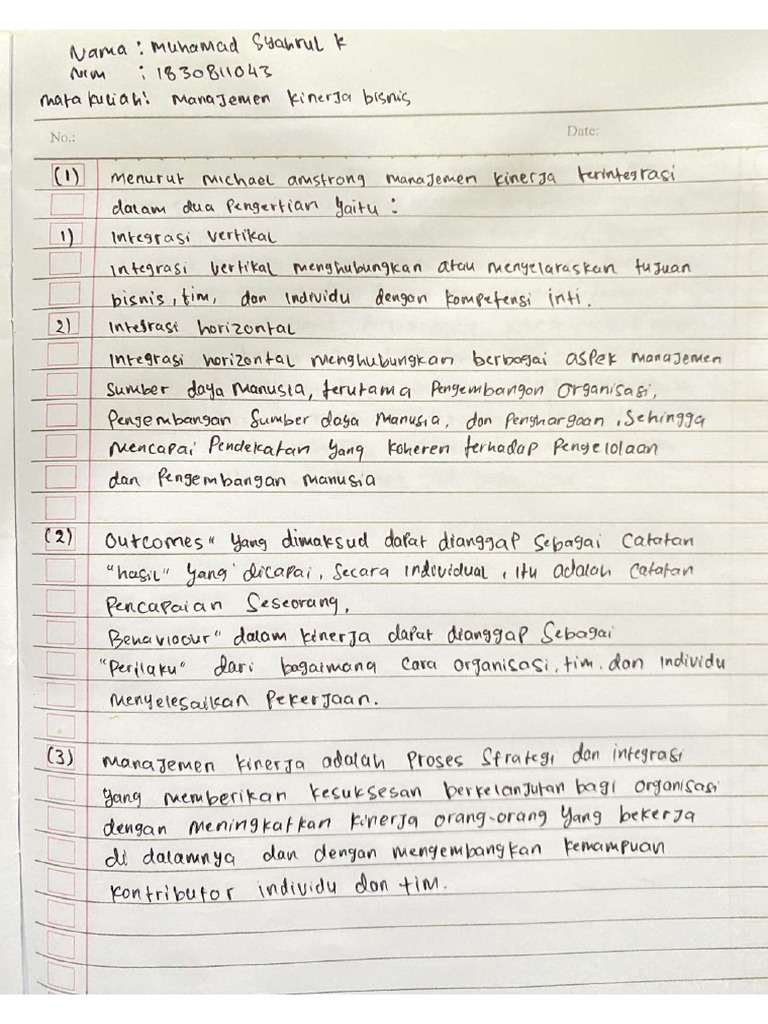 Nama : Muhamad Syahrul K
Nim : 1830811043
Mata kuliah : Manajemen kinerja bisnis
No.: Date:
(1) Menurut Michael amstrong manajemen kinerja terintegrasi
dalam dua Pengertian yaitu :
1) Integrasi vertikal
Integrasi vertikal menghubungkan atau menyelaraskan tujuan
bisnis, tim, dan individu dengan kompetensi inti.
2) Integrasi horizontal
Integrasi horizontal menghubungkan berbagai aspek manajemen
Sumber daya manusia, terutama Pengembangan organisasi,
Pengembangan Sumber daya Manusia, dan Penghargaan, Sehingga
mencapai Pendekatan yang koheren terhadap Pengelolaan
dan Pengembangan manusia
(2) Outcomes" yang dimaksud dapat dianggap Sebagai Catatan
"hasil" yang dicapai, Secara individual, itu adalah Catatan
Pencapaian Seseorang,
Behaviocur" dalam kinerja dapat dianggap Sebagai
"Perilaku" dari bagaimana Cara organisasi, tim. dan individu
menyelesaikan Pekerjaan.
(3) Manajemen kinerja adalah Proses Strategi dan integrasi
yang memberikan kesuksesan berkelanjutan bagi organisasi
dengan meningkatkan kinerja orang-orang yang bekerja
di dalamnya dan dengan mengembangkan kemampuan
kontributor individu dan tim.